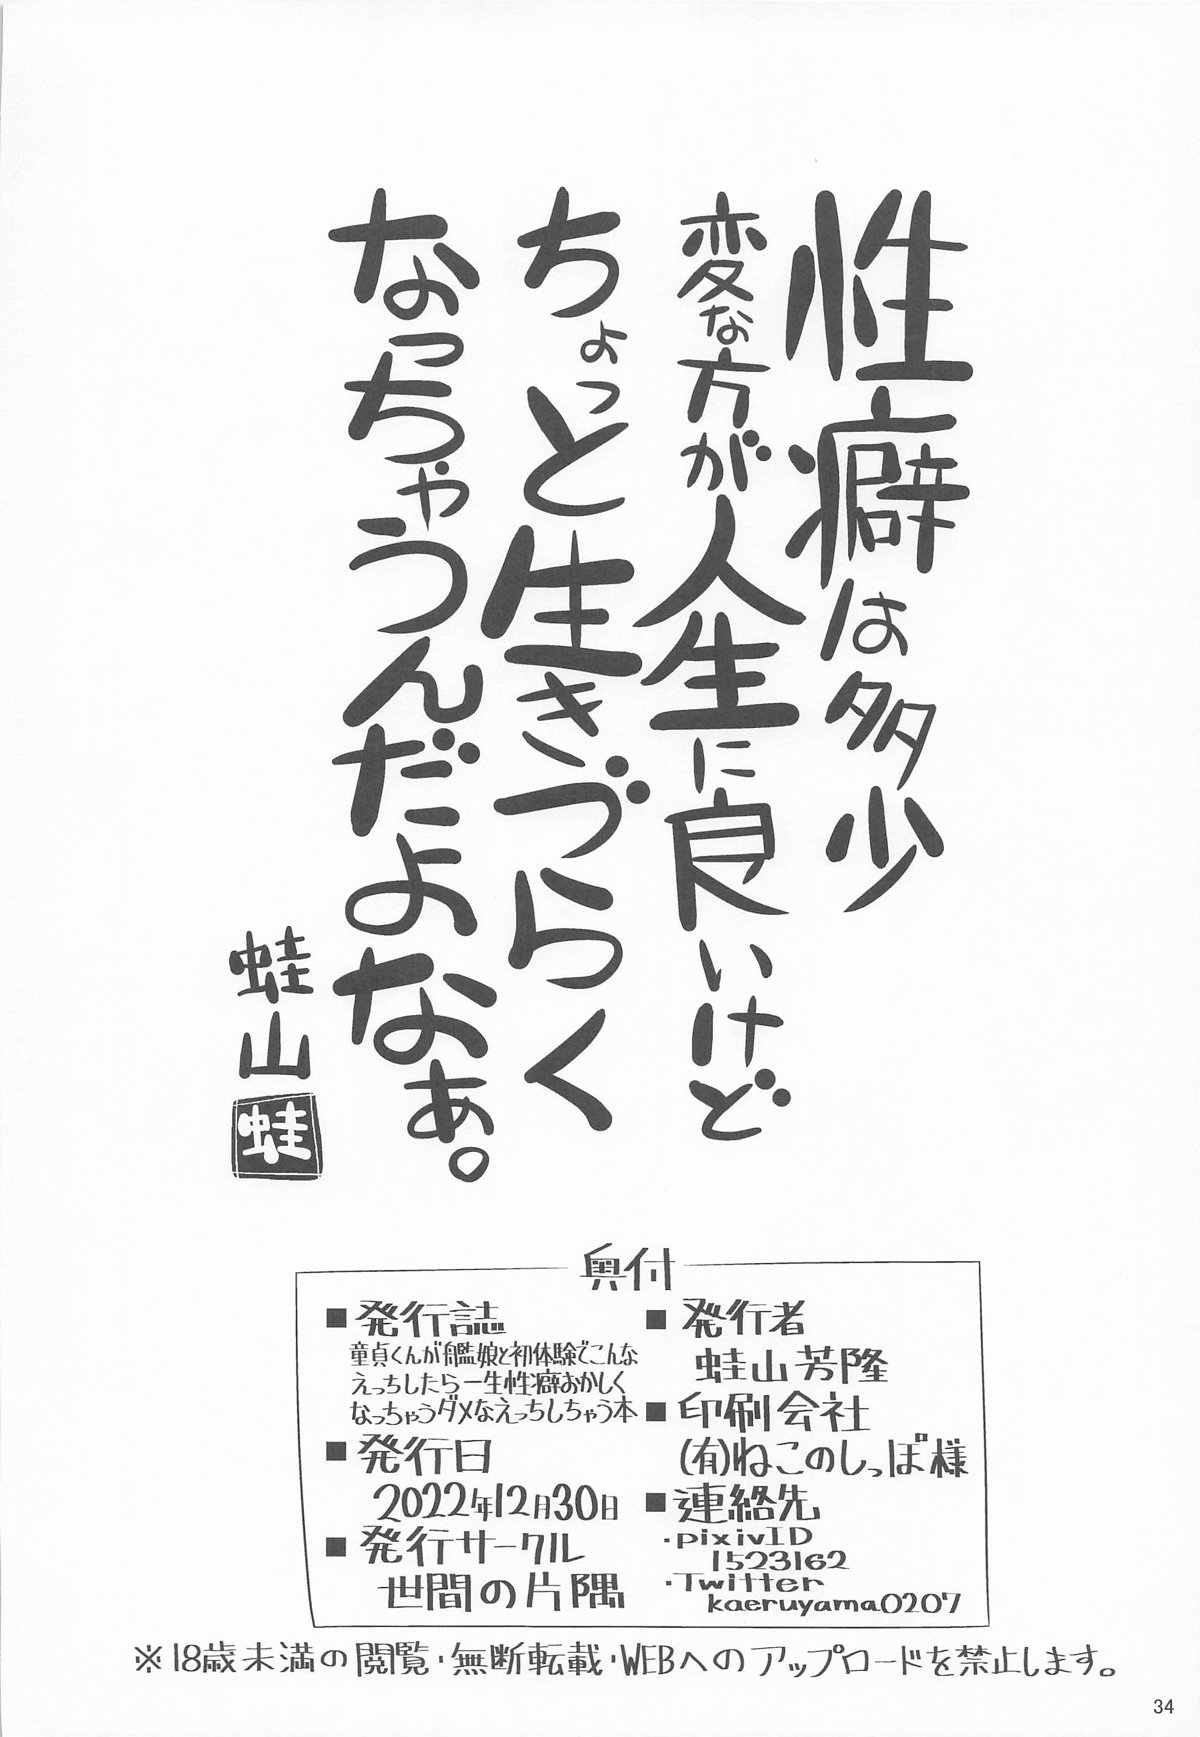 性癖は多少
変な方が人生に良いけど
ちょっと生きづらく
なっちゃうんだよなぁ。
蛙山
蛙
奥付
■発行誌
童貞くんが艦娘と初体験でこんな
えっちしたら一生性癖おかしく
なっちゃうダメなえっちしちゃう本
■発行日
2022年12月30日
■発行サークル
世間の片隅
■発行者
蛙山芳隆
■印刷会社
(有)ねこのしっぽ様
■連絡先
・pixivID
1523162
・Twitter
kaeruyama0207
※18歳未満の閲覧・無断転載・WEBへのアップロードを禁止します。
34